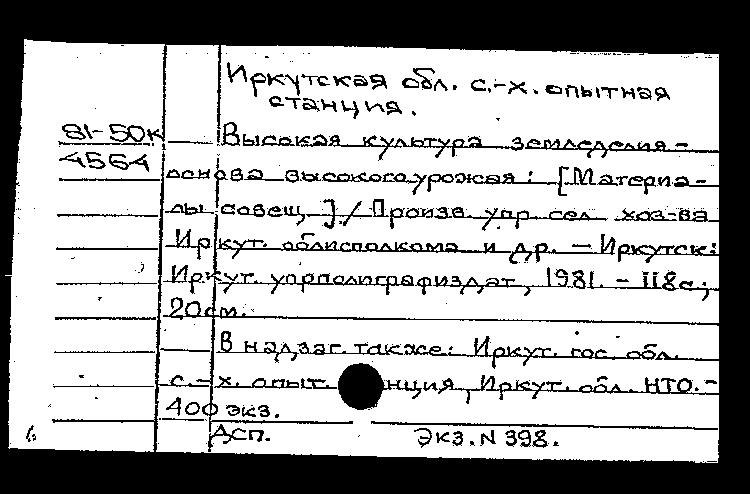 Иркутская обл. с.-х. опытная
станция.
81-50к
4564
Высокая культура земледелия -
основа высокого урожая: [Материа-
лы совещ.]. / Произв. упр. сел. хоз-ва
Иркут. облисполкома и др. - Иркутск:
Иркут. упрполиграфиздат, 1981. - 118с.;
20см.
В надзаг. также: Иркут. гос. обл.
с.-х. опыт. нция, Иркут. обл. НТО. -
400 экз.
Дсп. Экз. N 398.
6